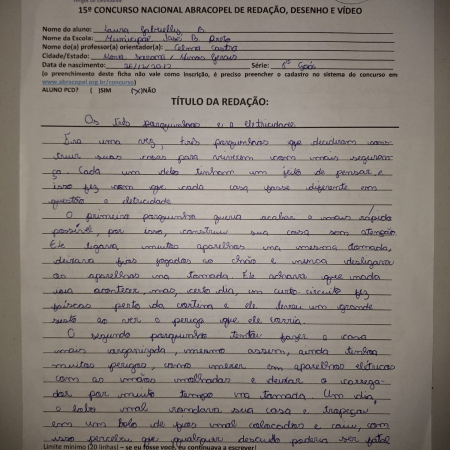 15º CONCURSO NACIONAL ABRACOPEL DE REDAÇÃO, DESENHO E VÍDEO
Nome do aluno: Laura Gabrielly B
Nome da Escola: Municipal José B
Nome do(a) professor(a) orientador(a): Celma Castro
Cidade/Estado: Nova Serrana / Minas Gerais
Data de nascimento: Série: 6º
(o preenchimento desta ficha não vale como inscrição, é preciso preencher o cadastro no sistema do concurso em
www.abracopel.org.br/concurso)
ALUNO PCD? ( )SIM (x)NÃO
TÍTULO DA REDAÇÃO:
Os três porquinhos e a eletricidade
Era uma vez, três porquinhos que decidiram cons-
truir suas casas para viverem com mais seguran-
ça. Cada um deles tinham um jeito de pensar, e
isso fez com que cada casa fosse diferente em
questão a eletricidade
O primeiro porquinho queria acabar o mais rápido
possível, por isso, construiu sua casa sem atenção.
Ele ligava muitos aparelhos na mesma tomada,
deixava fios jogados ao chão e nunca desligava
os aparelhos na tomada. Ele achava que nada
ia acontecer, mas, certo dia, um curto-circuito fez
faíscas perto da cortina e ele levou um grande
susto ao ver o perigo que ele corria.
O segundo porquinho tentou fazer a casa
mais organizada, mesmo assim, ainda tinha
muitos perigos, como mexer em aparelhos elétricos
com as mãos molhadas e deixar o carrega-
dor por muito tempo na tomada. Um dia,
o lobo mal rondava sua casa e tropeçou
em um bolo de fios mal colocados e caiu, com
isso percebeu que qualquer descuido poderia ser fatal
Limite mínimo (20 linhas) – se eu fosse você, eu continuava a escrever!